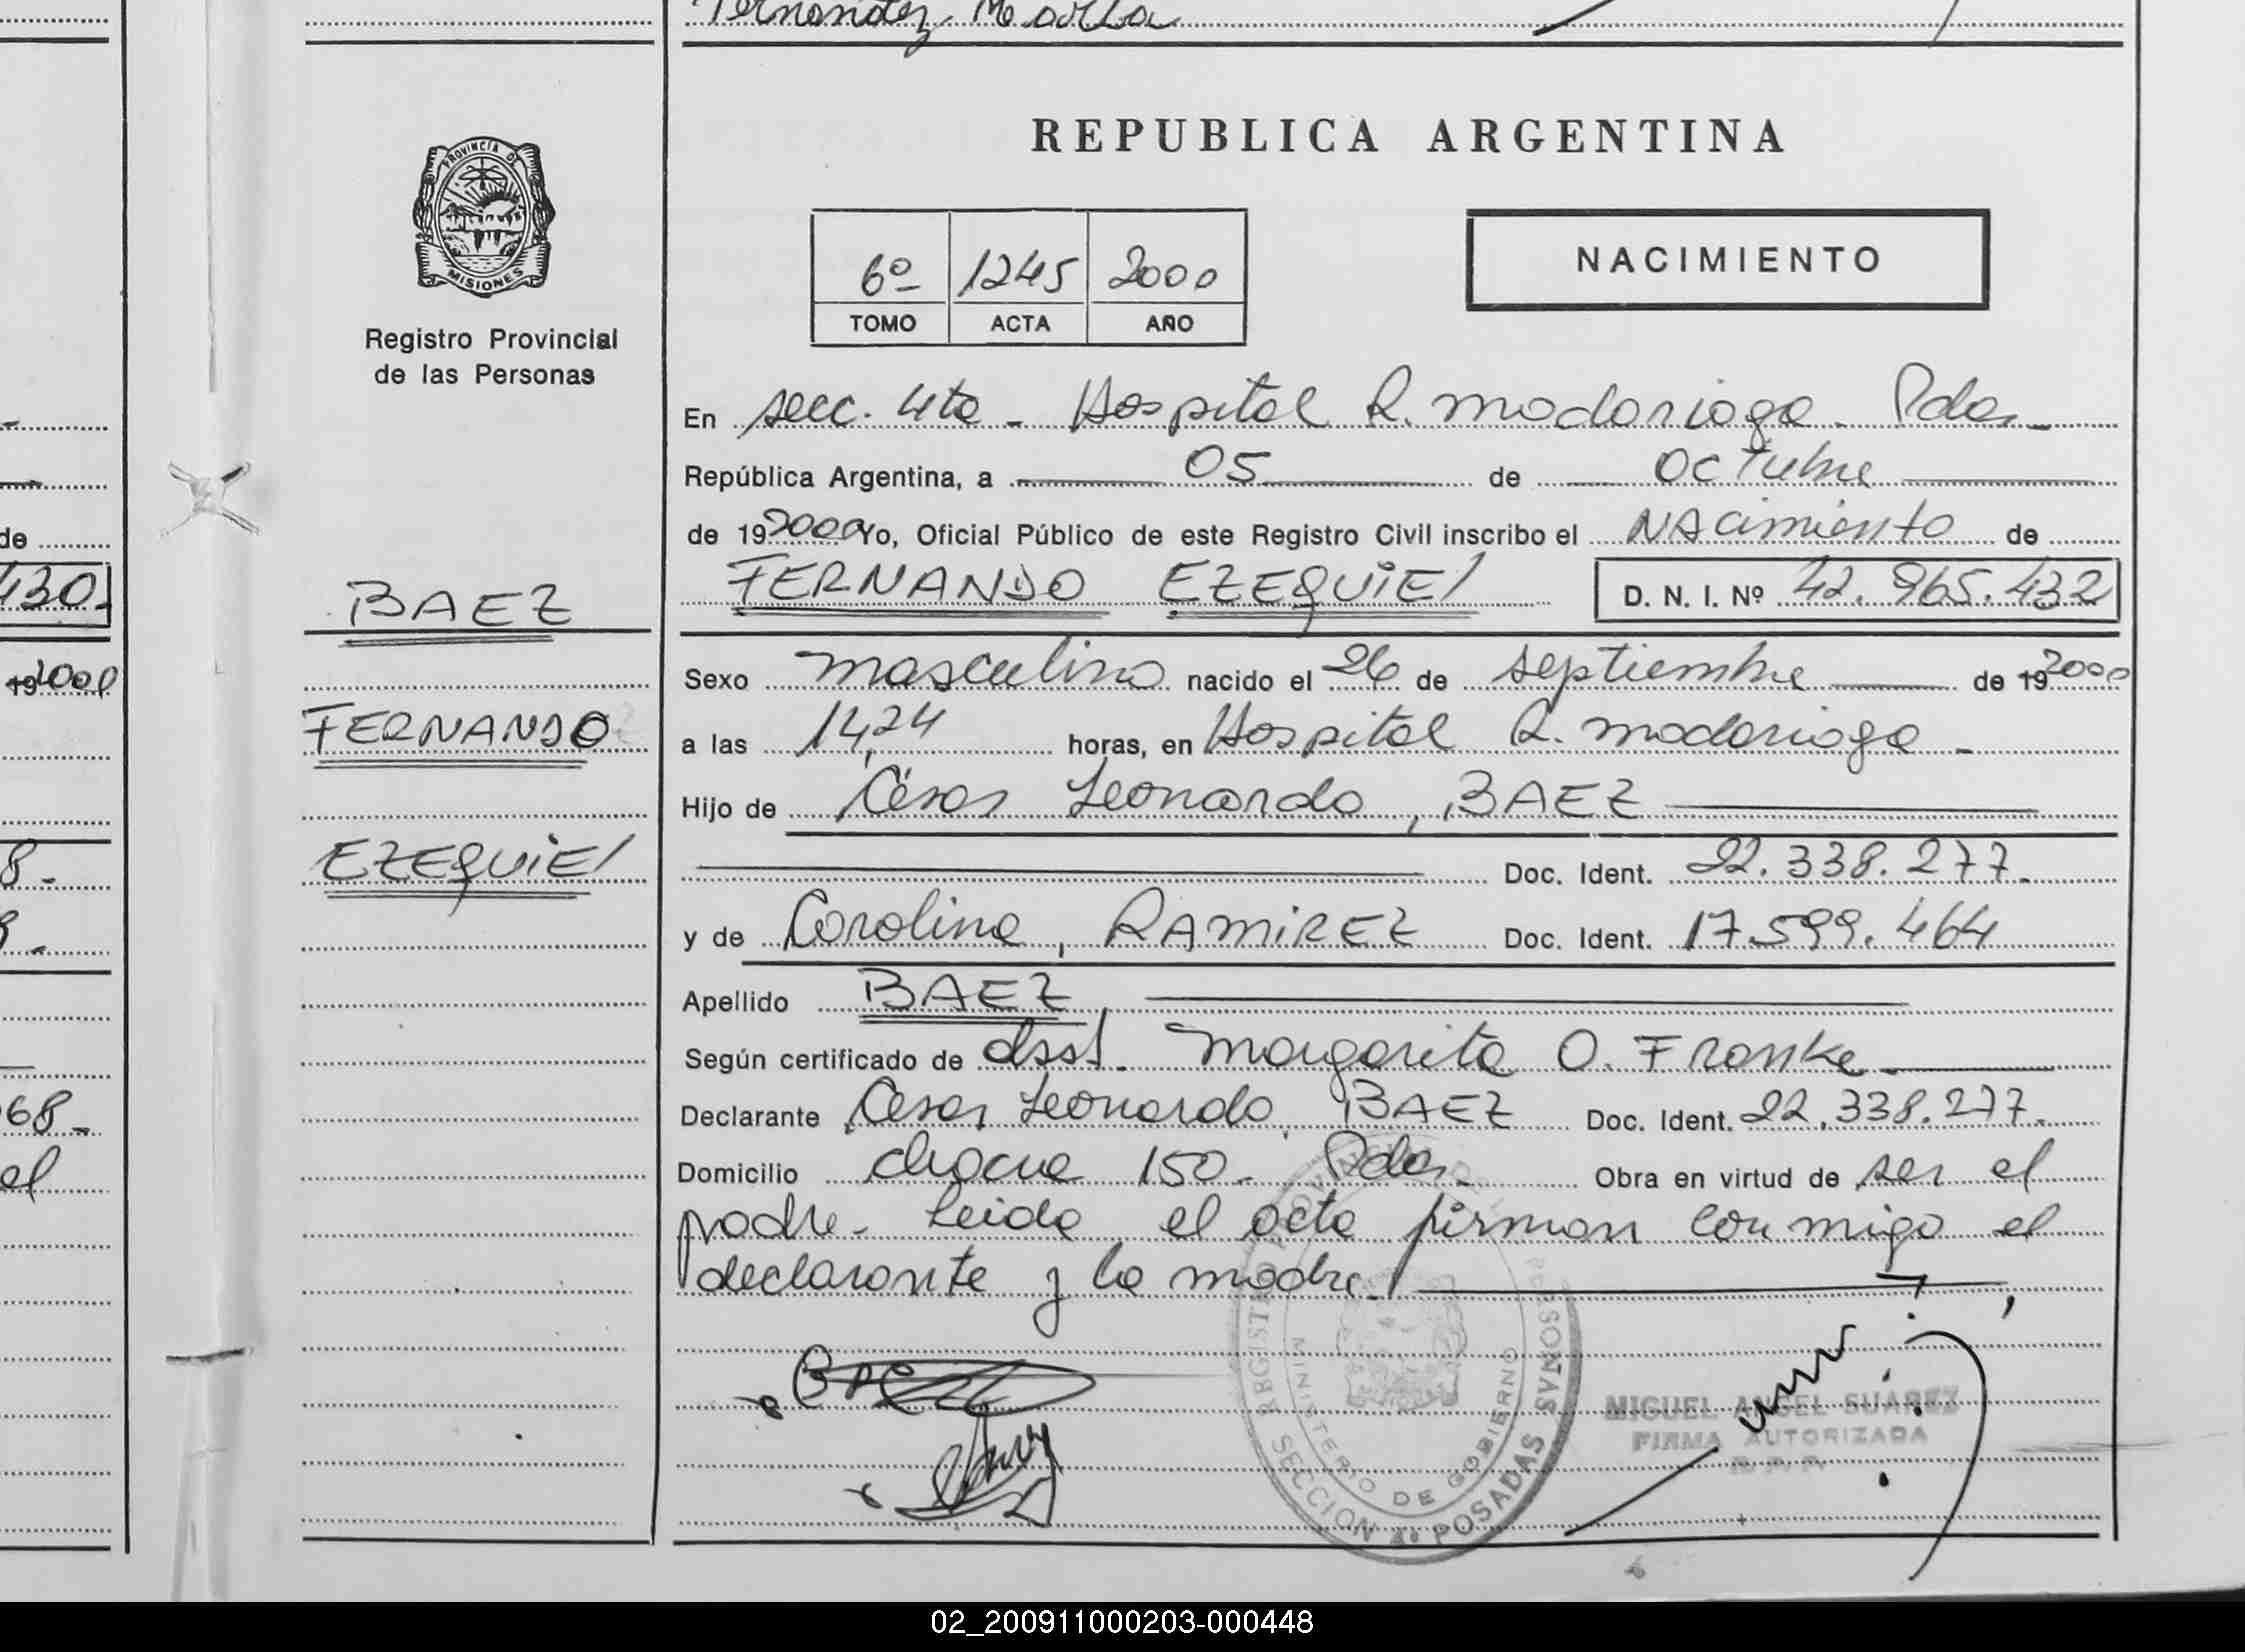 Fernandez
REPUBLICA ARGENTINA
PROVINCIA DE
MISIONES
Registro Provincial
de las Personas
6º 1245 2000
TOMO ACTA AÑO
NACIMIENTO
En secc. 4ta - Hospital R. Madariaga. Pdas.
República Argentina, a 05 de octubre
de 192000 Yo, Oficial Público de este Registro Civil inscribo el Nacimiento de
430.
BAEZ
FERNANDO EZEQUIEL D. N. I. Nº 42.965.432
192000
Sexo masculino nacido el 26 de septiembre de 192000
FERNANDO
a las 14,24 horas, en Hospital R. Madariaga -
Hijo de César Leonardo, BAEZ
EZEQUIEL
8.
Doc. Ident. 22.338.277.
y de Carolina, RAMIREZ Doc. Ident. 17.599.464
Apellido BAEZ
Según certificado de obst. Margarita O. Franke
68-
Declarante Cesar Leonardo BAEZ Doc. Ident. 22.338.277.
el
Domicilio chacra 150. Pdas. Obra en virtud de ser el
padre. Leida el acta firman conmigo el
declarante y la madre.
REGISTRO PROVINCIAL DE LAS PERSONAS
MINISTERIO DE GOBIERNO
SECCION 4º POSADAS
MIGUEL ANGEL SUAREZ
FIRMA AUTORIZADA
02_200911000203-000448